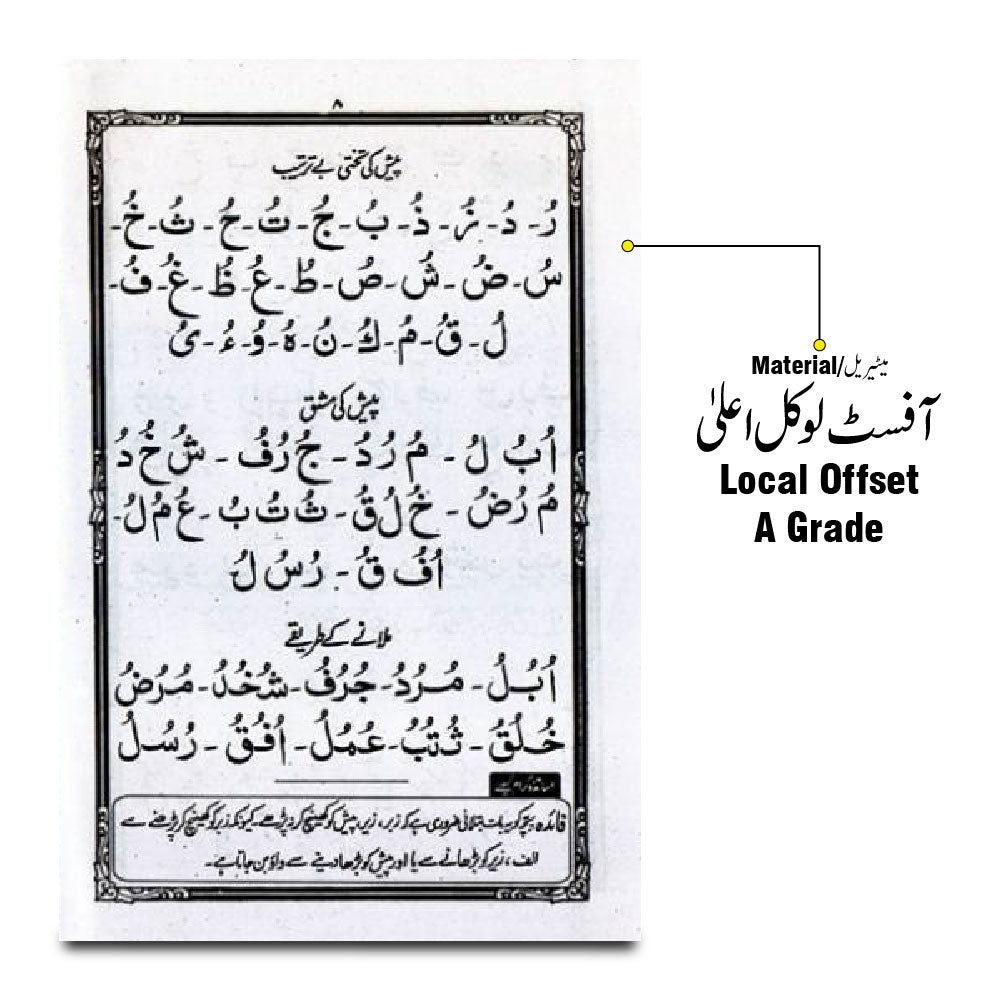 ۸
پیش کی تختی بے ترتیب
رُ - دُ - زُ - ذُ - بُ - جُ - تُ - حُ - ثُ - خُ -
سُ - ضُ - شُ - صُ - طُ - عُ - ظُ - غُ - فُ -
لُ - قُ - مُ - كُ - نُ - هُ - وُ - ءُ - ىُ
پیش کی مشق
اُ بُ لُ - مُ رُ دُ - جُ رُ فُ - شُ خُ دُ
مُ رُ ضُ - خُ لُ قُ - ثُ تُ بُ - عُ مُ لُ -
اُ فُ قُ - رُ سُ لُ
ملانے کے طریقے
اُبُلُ - مُرُدُ - جُرُفُ - شُخُدُ - مُرُضُ
خُلُقُ - ثُتُبُ - عُمُلُ - اُفُقُ - رُسُلُ
فائدہ بچّہ کو یہ بات بتلانی ضروری ہے کہ زبر، زیر، پیش کو کھینچ کر نہ پڑھے۔ کیونکہ زبر کو کھینچ کر پڑھنے سے
الف، زیر کو بڑھانے سے یا اور پیش کو بڑھا دینے سے واؤ بن جاتا ہے۔
میٹیریل/Material
آفسٹ لوکل اعلیٰ
Local Offset
A Grade